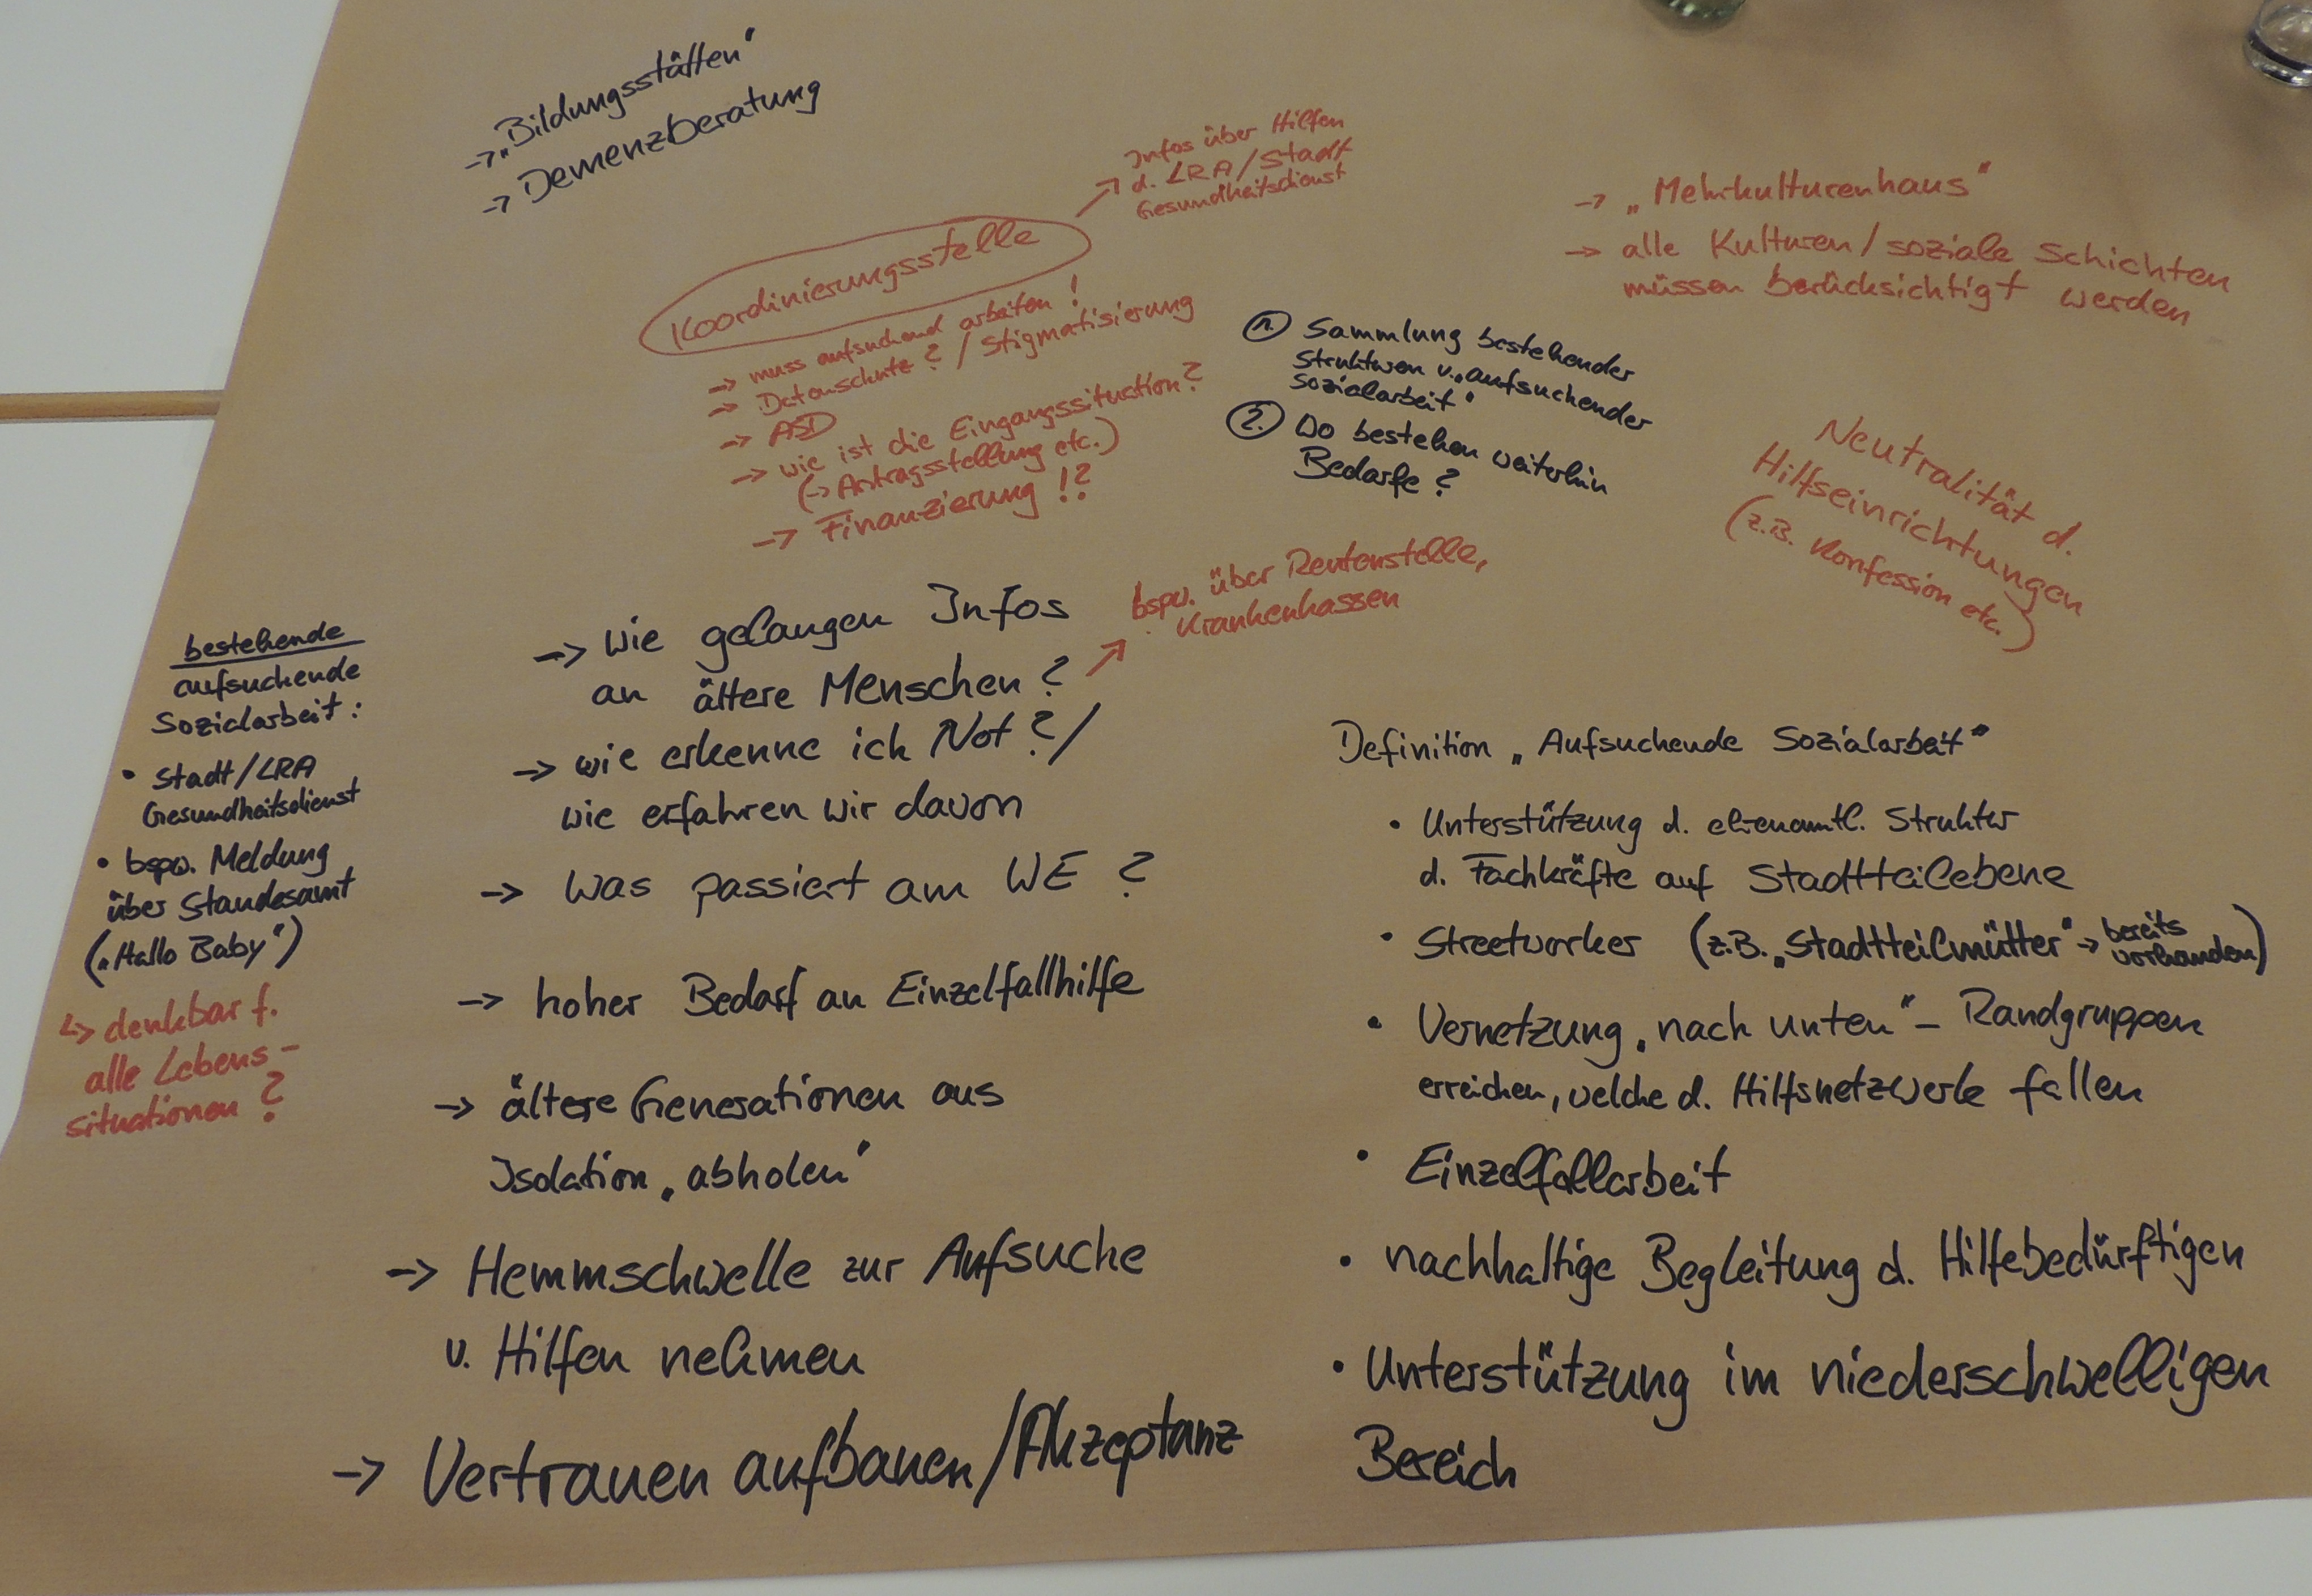 → „Bildungsstätten“
→ Demenzberatung
Koordinierungsstelle
↗ Infos über Hilfen
d. LRA/Stadt
Gesundheitsdienst
→ muss aufsuchend arbeiten!
→ Datenschutz? / Stigmatisierung
→ ASD
→ wie ist die Eingangssituation?
(→ Antragsstellung etc.)
→ Finanzierung !?
→ „Mehrkulturenhaus“
→ alle Kulturen/soziale Schichten
müssen berücksichtigt werden
1. Sammlung bestehender
Strukturen v. „aufsuchender
Sozialarbeit“
2. Wo bestehen weiterhin
Bedarfe?
Neutralität d.
Hilfseinrichtungen
(z.B. Konfession etc.)
bestehende
aufsuchende
Sozialarbeit:
• Stadt/LRA
Gesundheitsdienst
• bspw. Meldung
über Standesamt
(„Hallo Baby“)
↳ denkbar f.
alle Lebens-
situationen?
→ wie gelangen Infos
an ältere Menschen?
↗ bspw. über Rentenstelle,
Krankenkassen
→ wie erkenne ich Not?/
wie erfahren wir davon
→ Was passiert am WE?
→ hoher Bedarf an Einzelfallhilfe
→ ältere Generationen aus
Isolation „abholen“
→ Hemmschwelle zur Aufsuche
v. Hilfen nehmen
→ Vertrauen aufbauen/Akzeptanz
Definition „Aufsuchende Sozialarbeit“
• Unterstützung d. ehrenamtl. Struktur
d. Fachkräfte auf Stadtteilebene
• Streetworker (z.B. „Stadtteilmütter“ → bereits
vorhanden)
• Vernetzung „nach unten“ - Randgruppen
erreichen, welche d. Hilfsnetzwerk fallen
• Einzelfallarbeit
• nachhaltige Begleitung d. Hilfebedürftigen
• Unterstützung im niederschwelligen
Bereich